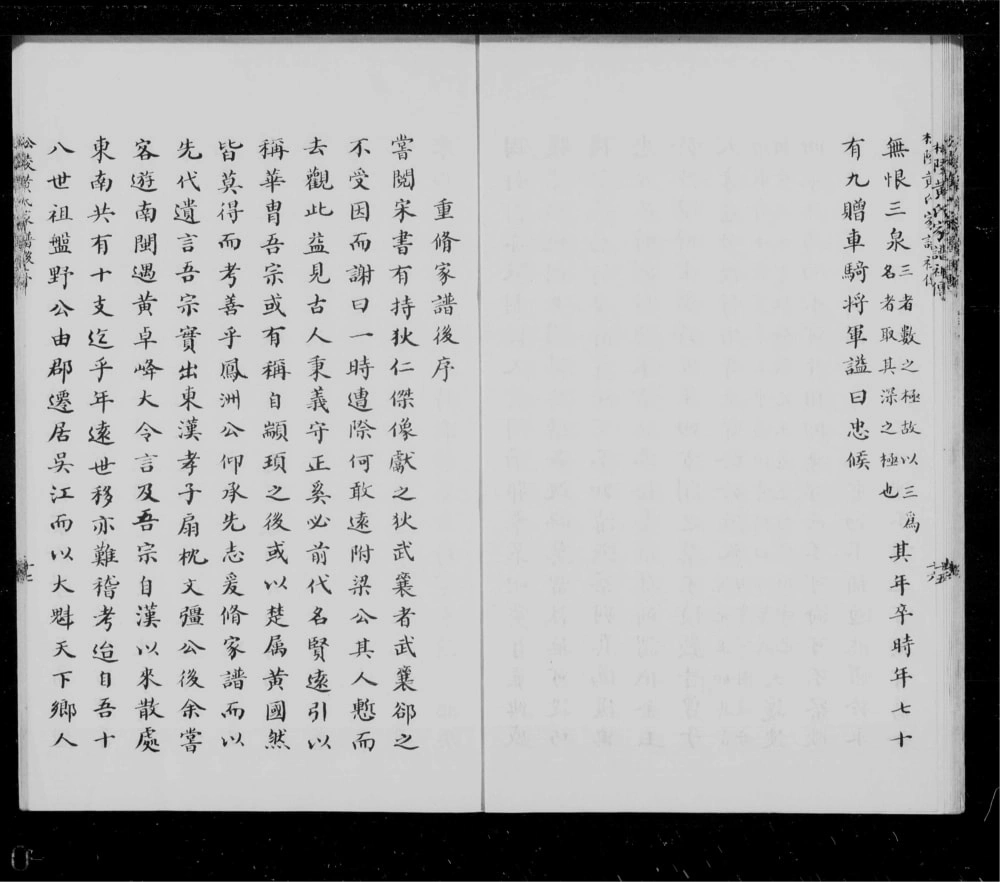 無恨三泉三者數之極故以三爲名者取其深之極也其年卒時年七十
有九贈車騎將軍謚曰忠候
重脩家譜後序
嘗閱宋書有持狄仁傑像獻之狄武襄者武襄郤之
不受因而謝曰一時遭際何敢遠附梁公其人慙而
去觀此益見古人秉義守正奚必前代名賢遠引以
稱華胄吾宗或有稱自顓頊之後或以楚属黄國然
皆莫得而考善乎鳳洲公仰承先志爰脩家譜而以
先代遺言吾宗實出東漢孝子扇枕文彊公後余嘗
客遊南閩遇黄卓峰大令言及吾宗自漢以來散處
東南共有十支迄乎年遠世移亦難稽考迨自吾十
八世祖盤野公由郡遷居吳江而以大魁天下鄉人